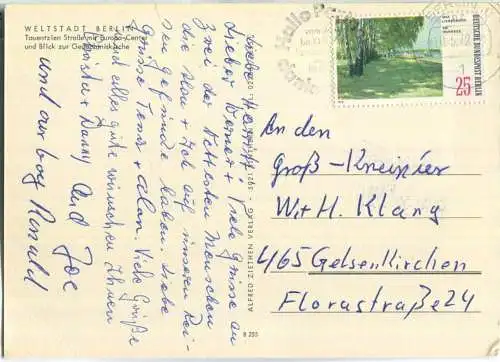 WELTSTADT BERLIN
Tauentzien Straße mit Europa-Center
und Blick zur Gedächtniskirche
Lieber Werner + Viele Grüsse an
zwei der Nettesten Menschen
die Alan + Ich auf unseren Rei-
sen gefunden haben. Liebe
Grüsse Toms + Alan. Viele Grüße
und alles gute wünschen Ihnen
+ Danny und Joe
und our boy Ronald
ALFRED ZIETHEN VERLAG
B 255
DEUTSCHE BUNDESPOST BERLIN
25
An den
Groß-Kneipier
W+H. Klang
465 Gelsenkirchen
Florastraße 24